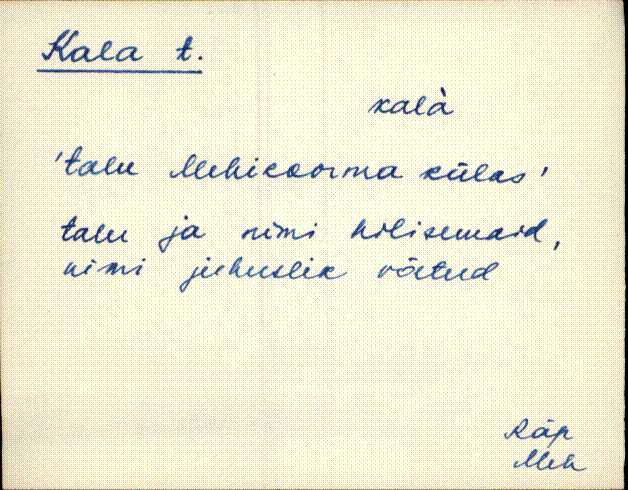 Kala t.
kalà
'talu Mehikoorma külas'
talu ja nimi hilisemaid,
nimi juhuslik võetud
Räp
Meh